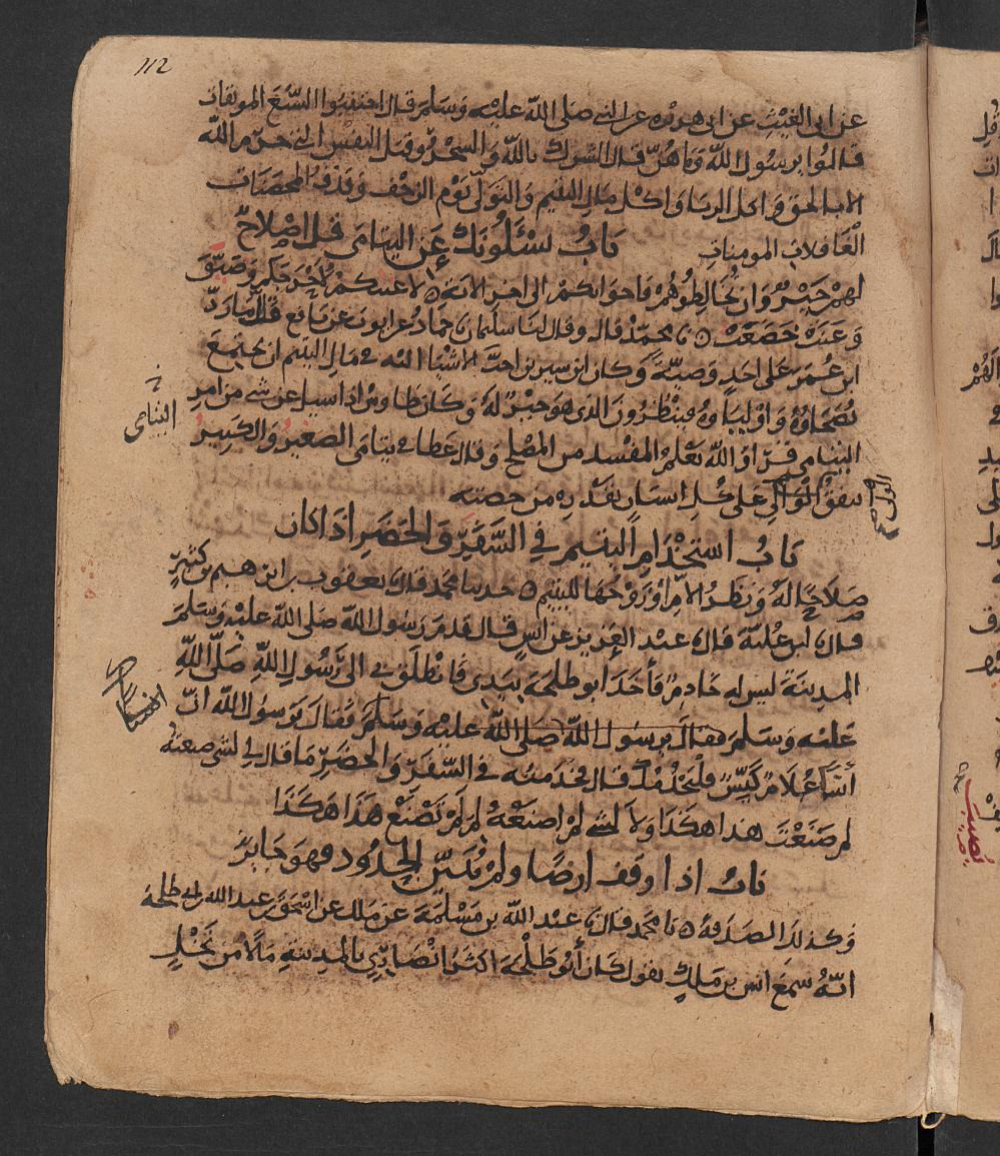 112
عن ابى الغيث عن ابى هريره عن النبى صلى الله عليه وسلم قال اجتنبوا السبع الموبقات
قالوا يرسول الله وما هن قال الشرك بالله والسحر وقتل النفس التى حرم الله
الا بالحق واكل الربا واكل مال اليتيم والتولى يوم الزحف وقذف المحصنات
الغافلات المومنات باب يسئلونك عن اليتامى قل اصلاح
لهم خير وان تخالطوهم فاخوانكم الى اخر الاية لاعنتكم لاحرجكم وضيق
وعنت خضعت نا محمد قال وقال لنا سليمان نا حماد عن ايوب عن نافع قال ما رد
ابن عمر على احد وصية وكان ابن سيرين احب الاشيا اليه فى مال اليتيم ان يجتمع
نصحاوه واولياوه فينظرون الذى هو خير له وكان طاوس اذا سيل عن شى من امر
اليتامى قرا والله يعلم المفسد من المصلح وقال عطا فى يتامى الصغير والكبير
ينفق الوالى على كل انسان بقدره من حصته
باب استخدام اليتيم في السفر والحضر اذا كان
صلاحا له ونظر الام او زوجها لليتيم حدثنا محمد قال نا يعقوب بن ابرهيم بن كثير
قال نا ابن علية قال نا عبد العزيز عن انس قال قدم رسول الله صلى الله عليه وسلم
المدينة ليس له خادم فأخذ أبو طلحة بيدى فانطلق بى الى رسول الله صلى الله
عليه وسلم فقال يرسول الله صلى الله عليه وسلم فقال يرسول الله ان
أنسا غلام كيس فليخدمك قال فخدمته في السفر والحضر ما قال لي لشى صنعته
لم صنعت هذا هكذا ولا لشى لم اصنعه لم لم تصنع هذا هكذا
باب اذا وقف ارضا ولم يبين الحدود فهو جايز
وكذلك الصدقة نا محمد قال نا عبد الله بن مسلمة عن ملك عن اسحق بن عبد الله بن ابى طلحة
انه سمع انس بن ملك يقول كان أبو طلحة اكثر انصاري بالمدينة مالا من نخل